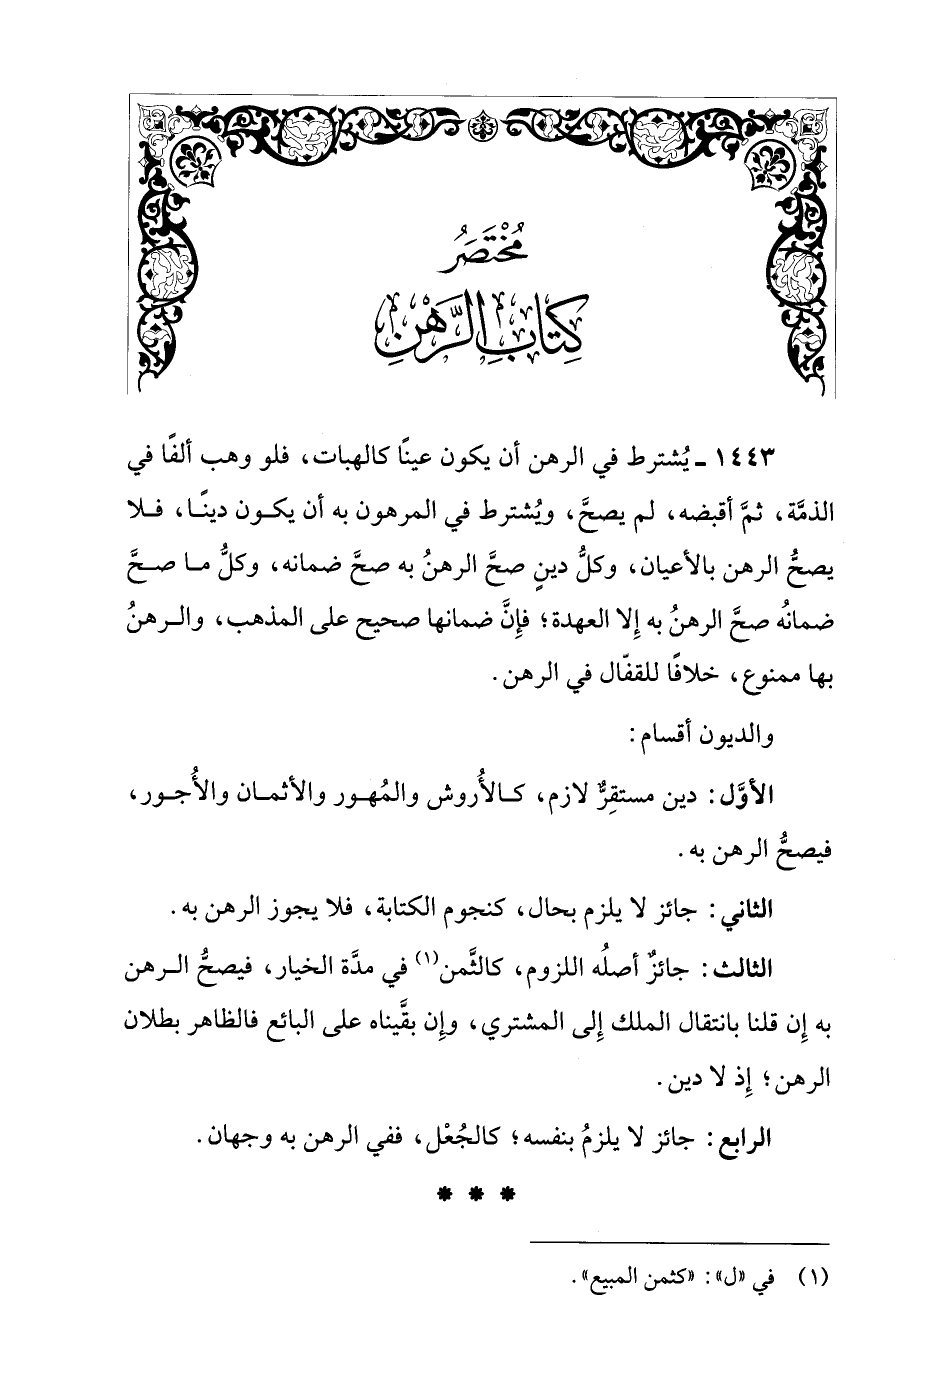 مُخْتَصَرُ
كِتَابِ الرَّهْنِ
١٤٤٣ ـ يُشترط في الرهن أن يكون عينًا كالهبات، فلو وهب ألفًا في
الذمَّة، ثمَّ أقبضه، لم يصحَّ، ويُشترط في المرهون به أن يكـون دينًـا، فـلا
يصحُّ الرهن بالأعيان، وكلُّ دينٍ صحَّ الرهنُ به صحَّ ضمانه، وكلُّ مـا صـحَّ
ضمانُه صحَّ الرهنُ به إلا العهدة؛ فإنَّ ضمانها صحيح على المذهب، والـرهنُ
بها ممنوع، خلافًا للقفّال في الرهن.
والديون أقسام:
الأوَّل: دين مستقِرٌّ لازم، كـالأُروش والمُهـور والأثمـان والأُجـور،
فيصحُّ الرهن به.
الثاني: جائز لا يلزم بحال، كنجوم الكتابة، فلا يجوز الرهن به.
الثالث: جائزٌ أصلُه اللزوم، كالثَّمن(١) في مدَّة الخيار، فيصحُّ الـرهن
به إن قلنا بانتقال الملك إلى المشتري، وإن بقَّيناه على البائع فالظاهر بطلان
الرهن؛ إذ لا دين.
الرابع: جائز لا يلزمُ بنفسه؛ كالجُعْل، ففي الرهن به وجهان.
* * *
(١) في «ل»: «كثمن المبيع».